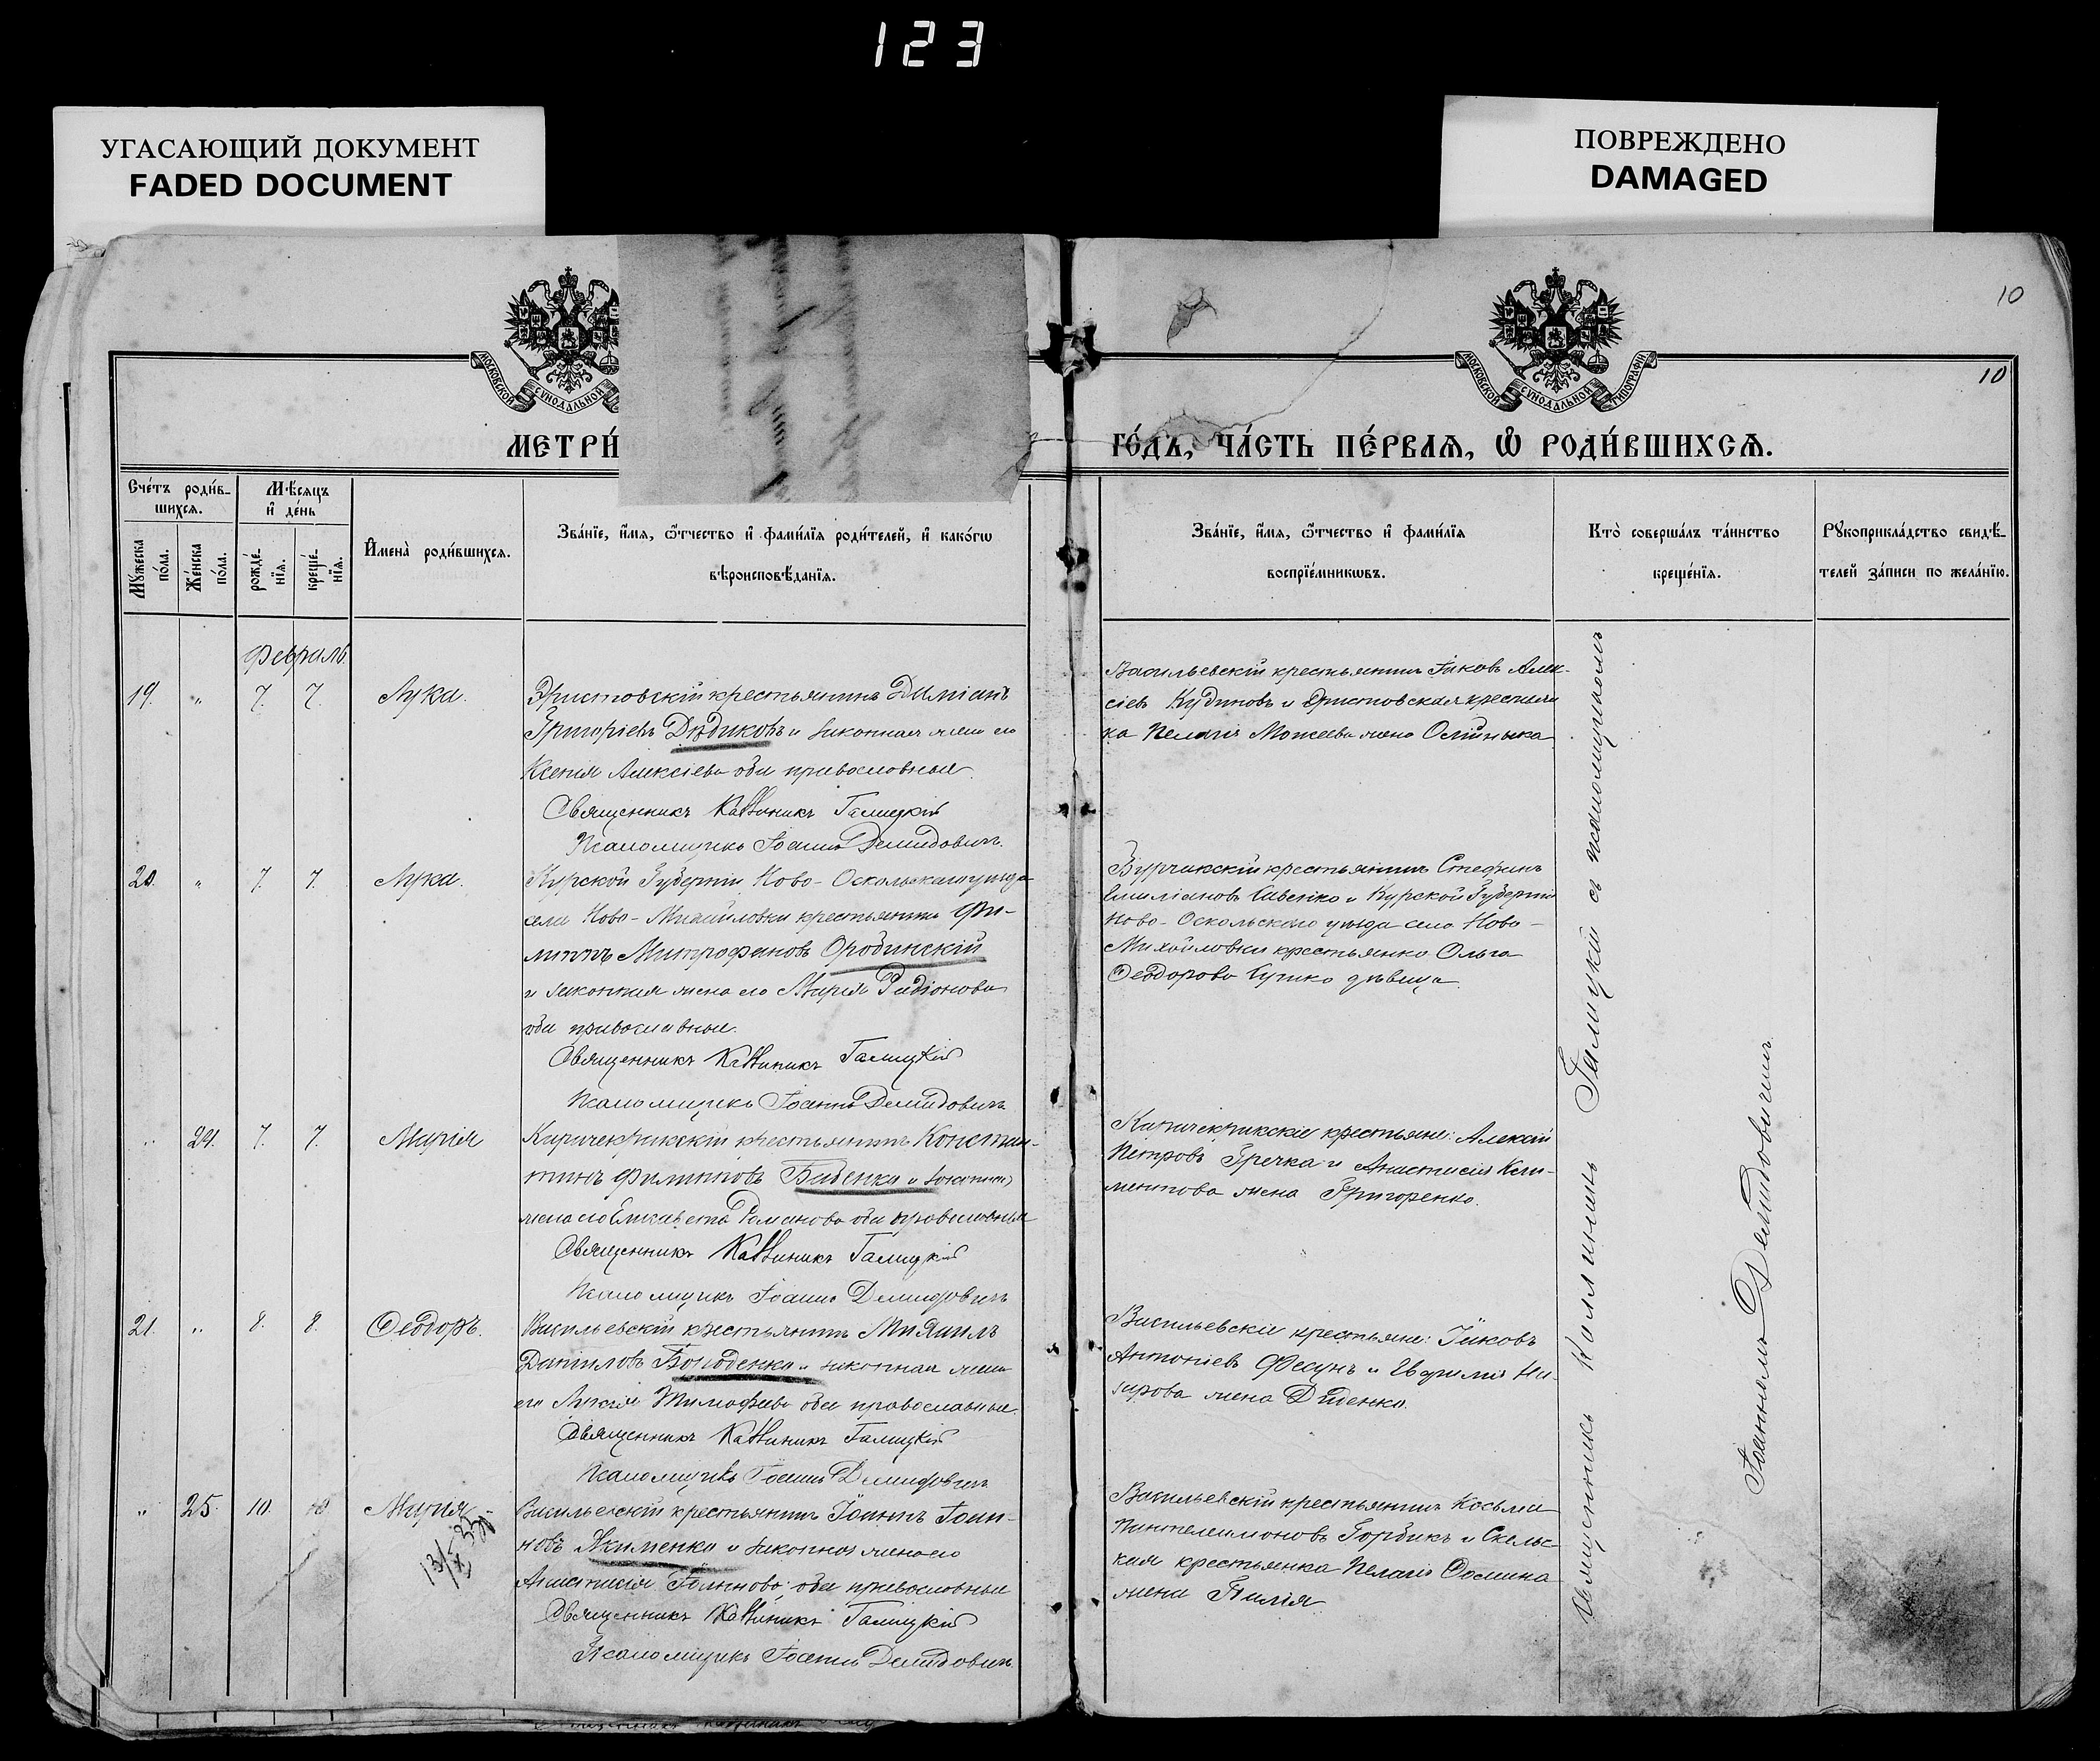 123
УГАСАЮЩИЙ ДОКУМЕНТ
FADED DOCUMENT
ПОВРЕЖДЕНО
DAMAGED
10
10
МОСКОВСКОЙ СѴНОДАЛЬНОЙ
МОСКОВСКОЙ СѴНОДАЛЬНОЙ ТИПОГРАФІИ
МЕТРИ́
ГО́ДЪ, ЧА́СТЬ ПЕ́РВАЯ, Ѽ РОДИ́ВШИХСЯ.
Сче́тъ роди́в-
шихся.
Мꙋ́жеска
по́ла.
Же́нска
по́ла.
Мѣ́сяцъ
и҆ де́нь
рожде́-
нїя.
креще́-
нїя.
И҆мена̀ роди́вшихся.
Зва́нїе, и҆́мя, ѻ҆́тчество и҆ фами́лїя роди́телей, и҆ како́гѡ
вѣроисповѣ́данїя.
Зва́нїе, и҆́мя, ѻ҆́тчество и҆ фами́лїя
воспрїе́мникѡвъ.
Кто̀ соверша́лъ та́инство
креще́нїя.
Рꙋкоприкла́дство свидѣ́-
телей за́писи по жела́нїю.
Февраль
19. " 7. 7. Лука.
крестьянинъ Даміанъ
Григоріевъ Дѣдиковъ и законная жена его
Ксенія Алексіева оба православные
Священникъ Каллиникъ Галицкій
Псаломщикъ Іоаннъ Демидовичъ.
Васильевскій крестьянинъ Іаковъ Алек-
сіевъ Кудиновъ и крестьян
ка Пелагія Моисеева жена
20. " 7. 7. Лука.
Курской Губерніи Ново-Оскольскаго уѣзда
села Ново-Михайловки крестьянинъ Фи-
липпъ Митрофановъ
и законная жена его Марія Радіонова
оба православные.
Священникъ Каллиникъ Галицкій
Псаломщикъ Іоаннъ Демидовичъ
крестьянинъ Стефанъ
Емиліановъ Савенко и Курской Губерніи
Ново-Оскольского уѣзда села Ново-
Михайловки крестьянка Ольга
Ѳеодорова дѣвица.
" 24. 7. 7. Марія
крестьянинъ Констан-
тинъ Филипповъ Бабенко и законная
жена его Елисавета Романова оба православные
Священникъ Каллиникъ Галицкій
Псаломщикъ Іоаннъ Демидовичъ
крестьяне: Алексій
Петровъ Гречка и Анастасія Кли-
ментова жена Григоренко.
21. " 8. 8. Ѳеодоръ.
Васильевскій крестьянинъ Михаилъ
Даніиловъ и законная жена
его Лукія Тимофеева оба православные.
Священникъ Каллиникъ Галицкій
Псаломщикъ Іоаннъ Демидовичъ
Васильевскіе крестьяне: Іаковъ
Антоніевъ Фесунъ и Евфимія На-
зарова жена Диденко.
" 25. 10. 10 Марія
Васильевскій крестьянинъ Іоаннъ Іоан-
новъ Якименко и законная жена его
Анастасія Іоаннова оба православные
Священникъ Каллиникъ Галицкій
Псаломщикъ Іоаннъ Демидовичъ.
Васильевскій крестьянинъ Косьма
Пантелеимоновъ Горбикъ и Скельс-
кая крестьянка Пелагія
жена
Священникъ Каллиникъ Галицкій съ псаломщикомъ
Іоанномъ Демидовичемъ.